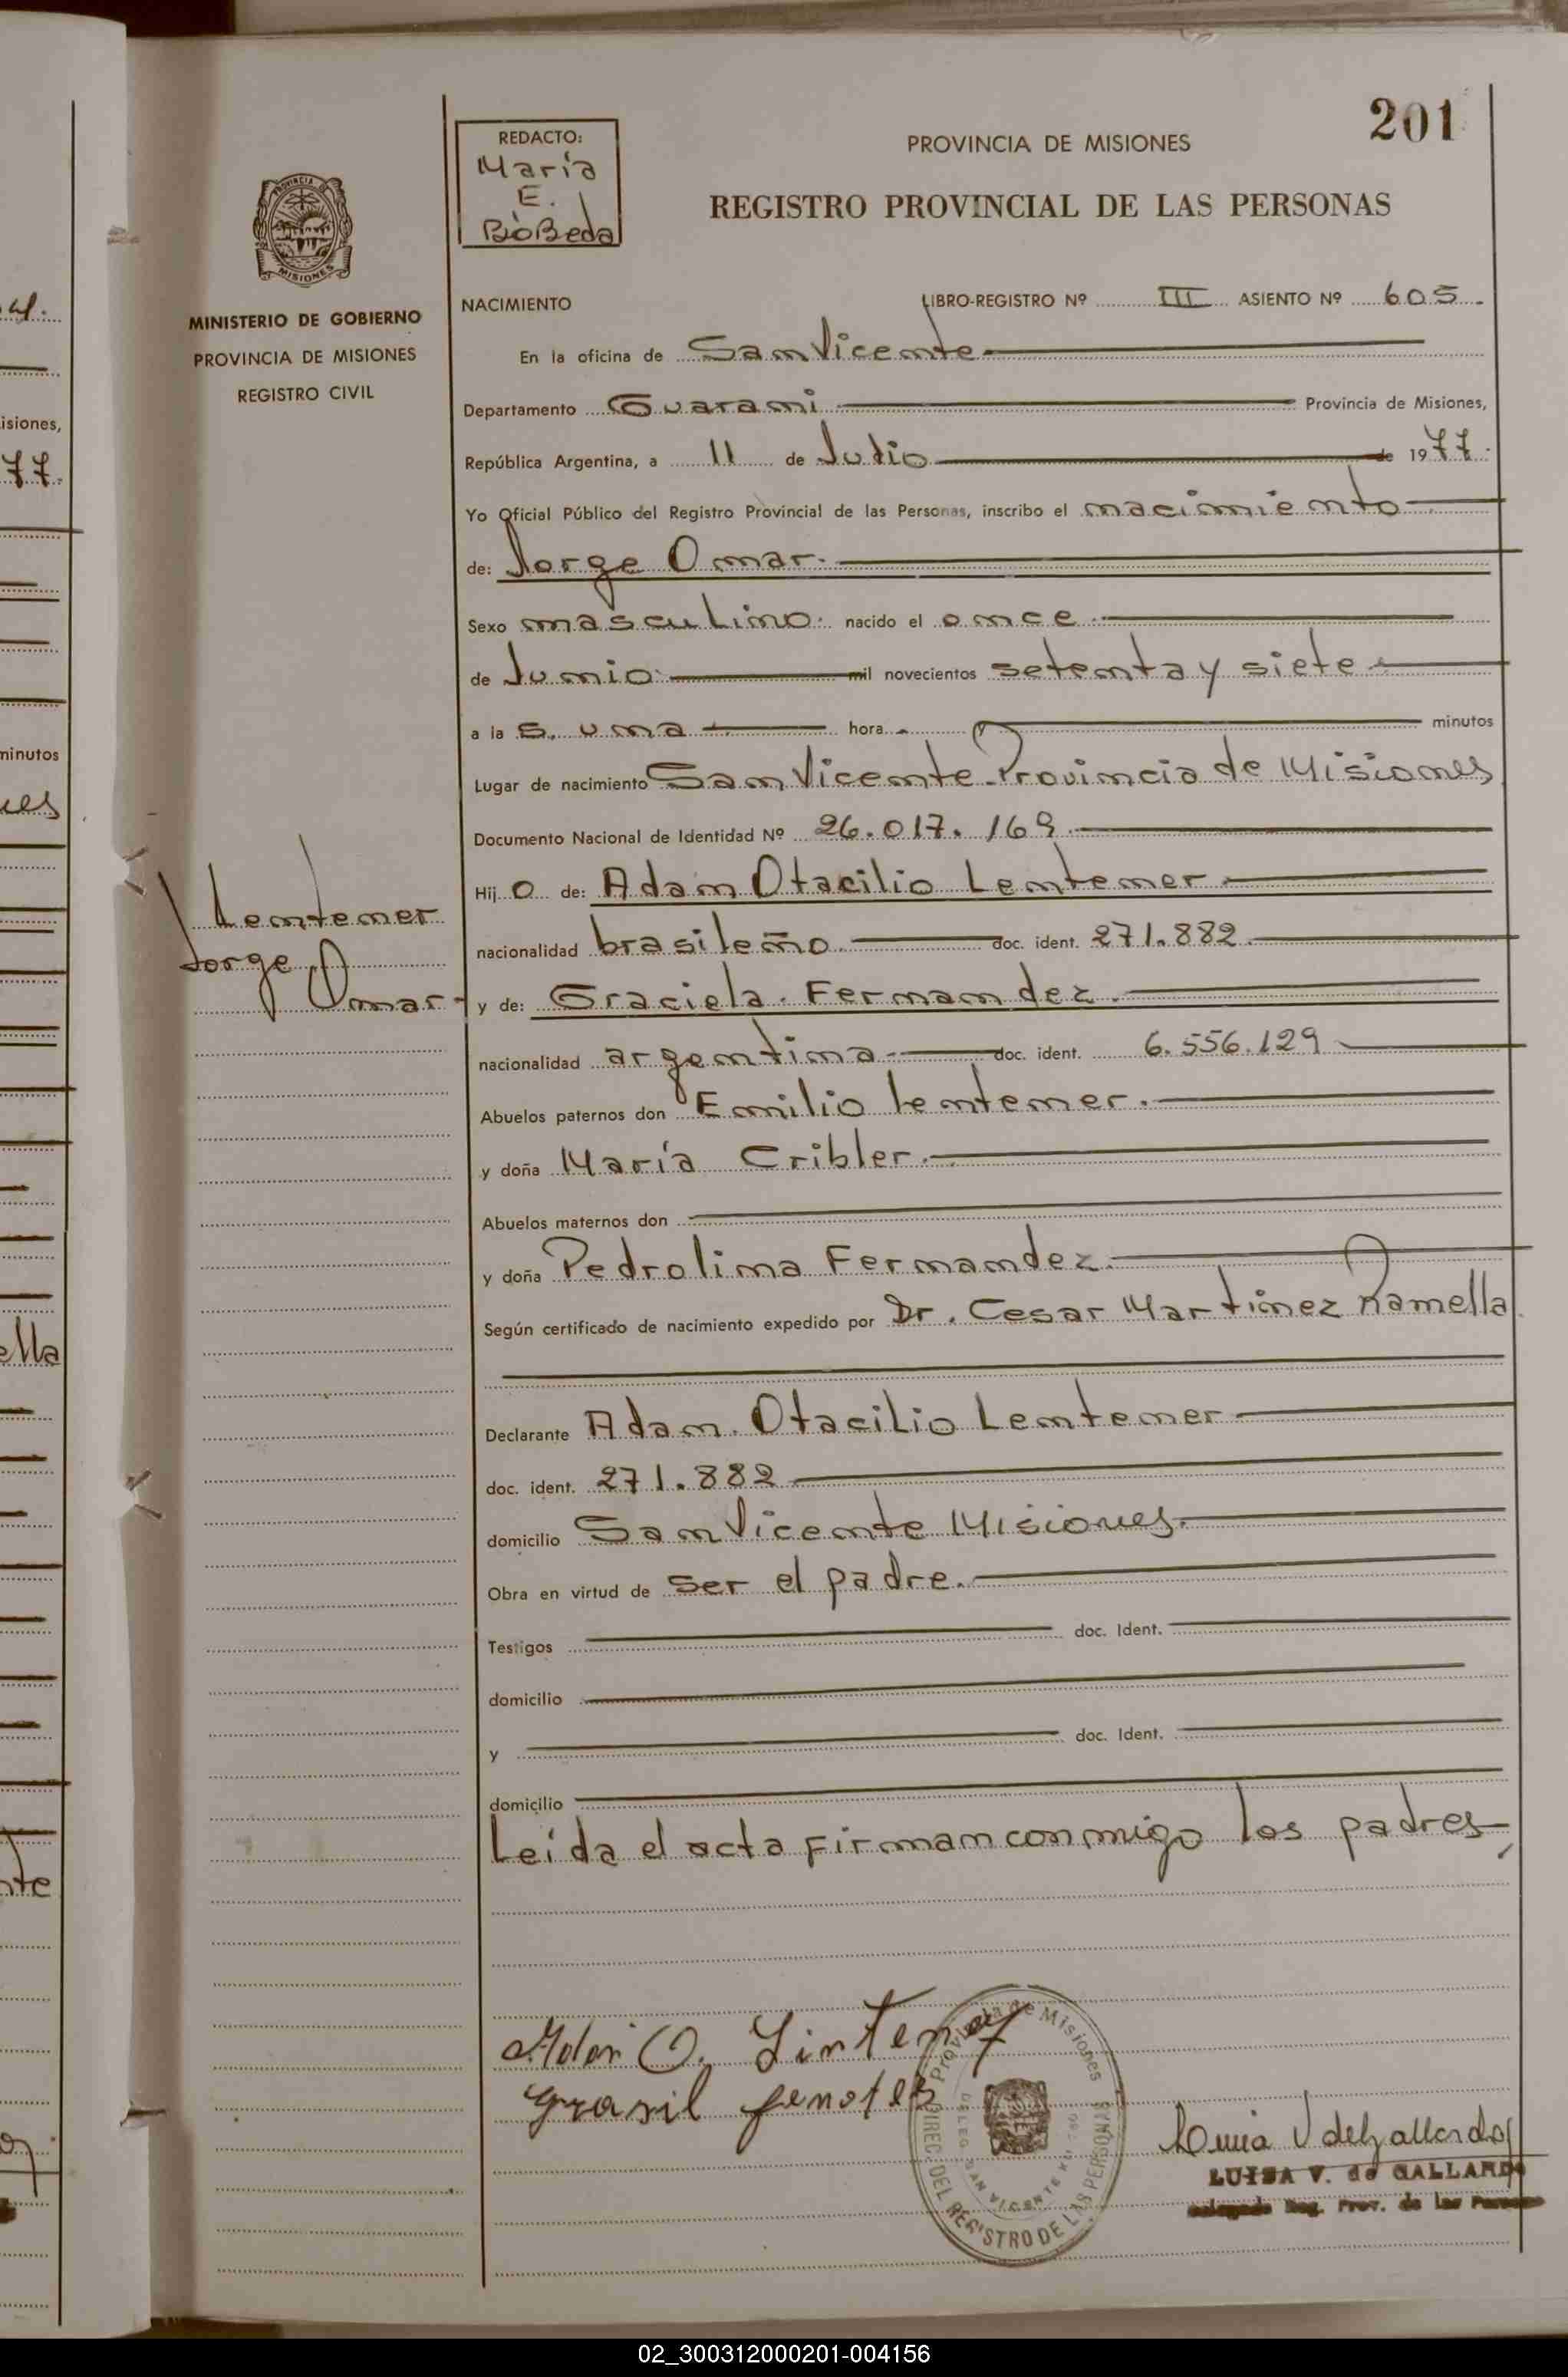 201
REDACTO:
María
E.
BòBeda
PROVINCIA DE MISIONES
REGISTRO PROVINCIAL DE LAS PERSONAS
PROVINCIA
MISIONES
MINISTERIO DE GOBIERNO
PROVINCIA DE MISIONES
REGISTRO CIVIL
NACIMIENTO LIBRO-REGISTRO Nº III ASIENTO Nº 605
En la oficina de San Vicente
Departamento Guarani Provincia de Misiones,
República Argentina, a 11 de Julio de 1977.
Yo Oficial Público del Registro Provincial de las Personas, inscribo el nacimiento
de: Jorge Omar.
Sexo masculino. nacido el once.
de Junio. mil novecientos setenta y siete
a la s. una hora minutos
Lugar de nacimiento San Vicente. Provincia de Misiones
Documento Nacional de Identidad Nº 26.017.169
Hij o de: Adam Otacilio Lentener
nacionalidad brasileño doc. ident. 271.882.
y de: Graciela. Fernandez.
nacionalidad argentina doc. ident. 6.556.129
Abuelos paternos don Emilio Lentener.
y doña María Cribler.
Abuelos maternos don
y doña Pedrolina Fernandez.
Según certificado de nacimiento expedido por Dr. Cesar Martinez Ramella.
Declarante Adam. Otacilio Lentener
doc. ident. 271.882
domicilio San Vicente Misiones.
Obra en virtud de ser el padre.
Testigos doc. Ident.
domicilio
y doc. Ident.
domicilio
Leída el acta firman conmigo los padres,
Lentener
Jorge
Omar
Adan O. Lintener
Provincia de Misiones
DIREC. DEL REGISTRO DE LAS PERSONAS
DELEG. SAN VICENTE
LUISA V. de GALLARDO
Delegada Reg. Prov. de las Personas
isiones,
77.
minutos
nes
ella
nte
02_300312000201-004156